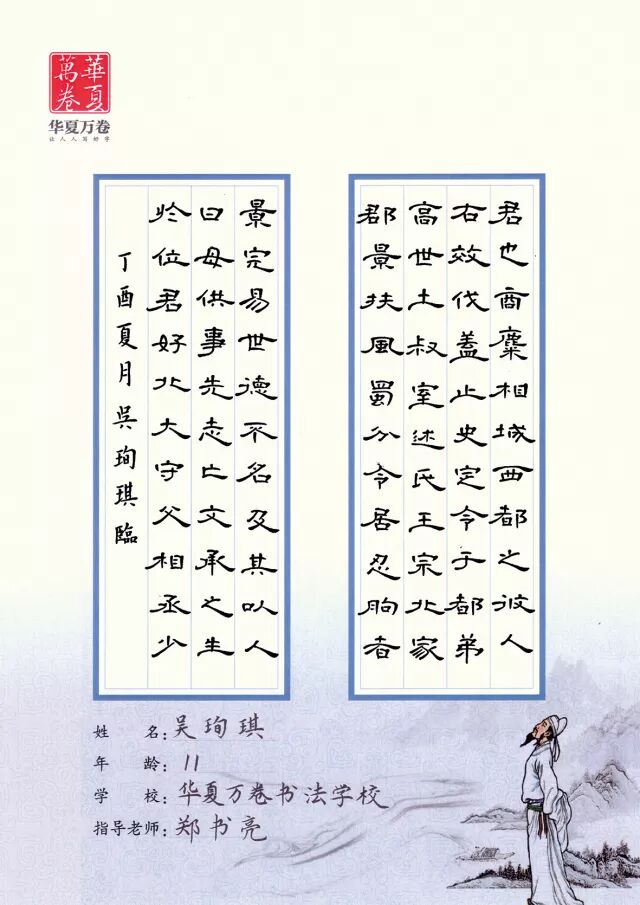 華夏萬卷
华夏万卷
让人人写好字
君也商麋相城西都之彼人
右效伐蓋止史定令于都弟
高世土叔室述氏王宗北家
郡景扶風蜀分令居忍朐者
景完易世德不名及其以人
曰母供事先志亡文承之生
於位君好北大守父相丞少
丁酉夏月吳珣琪臨
姓名:吴珣琪
年龄:11
学校:华夏万卷书法学校
指导老师:郑书亮